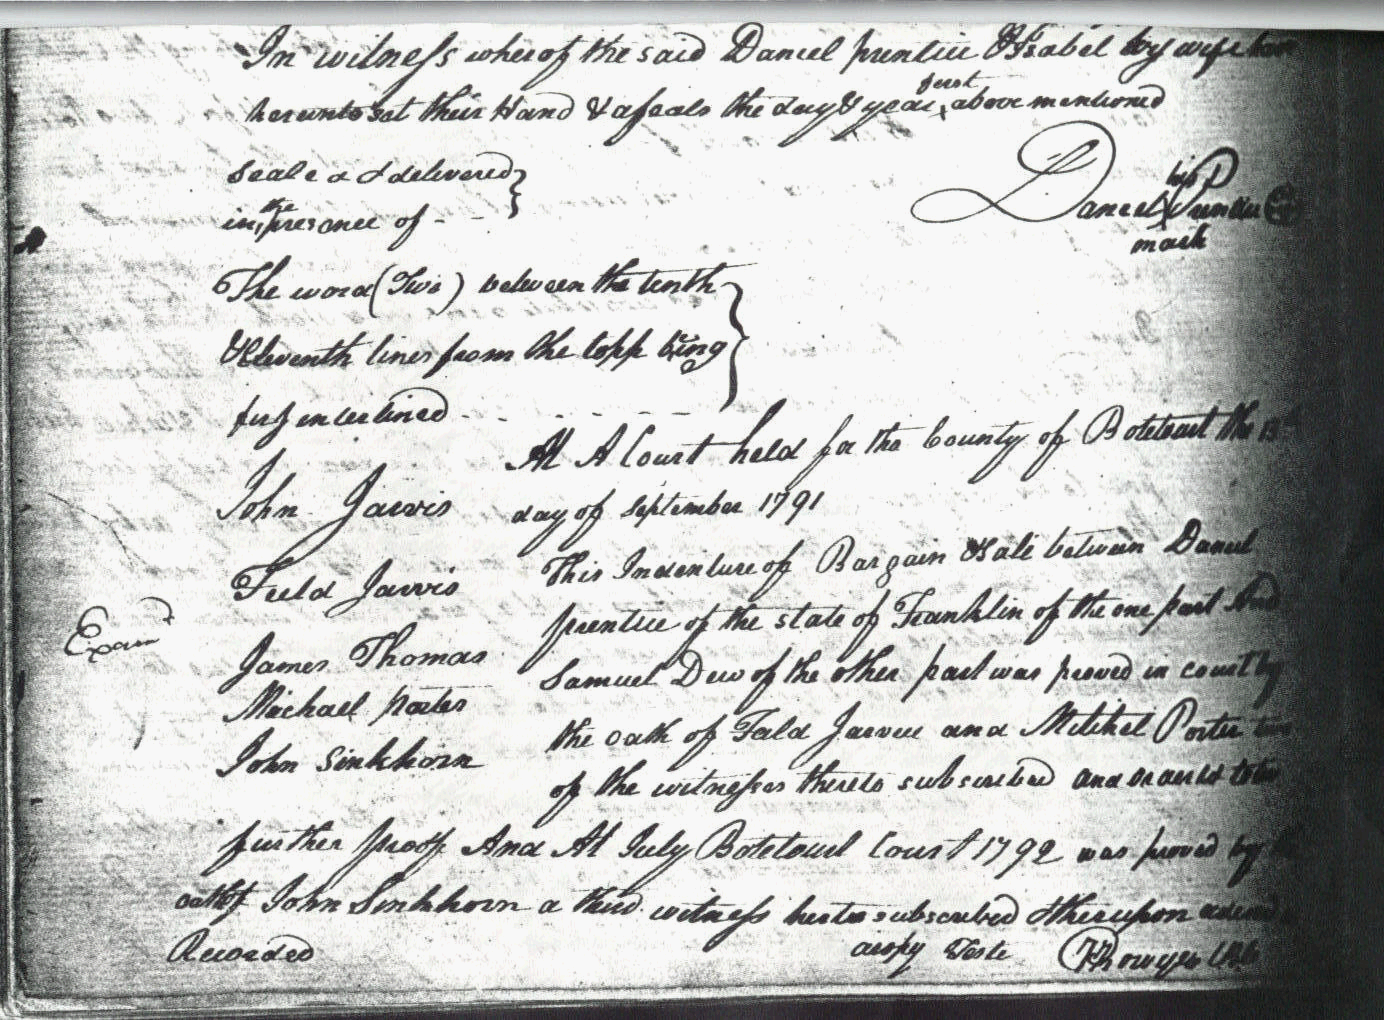 In witness wherof the said Daniel prentice & Isabel his wife have
hereunto set their Hand & afseals the day & year first above mentioned
Sealed & delivered
in the presence of - -
his
Daniel P Prentice
mark
The word (Two) between the tenth
& Eleventh lines from the topp being
furs interlined - - - - - -
At A Court held for the County of Botetourt the 13th
John Jarvis
day of September 1791
This Indenture of Bargain & Sale between Daniel
Feeld Jarvis
prentice of the state of Franklin of the one part And
Examd
James Thomas
Samuel Dew of the other part was proved in court by
Michael Porter
the oath of Fald Jarvice and Mitchel Porter two
John Sinkhorn
of the witnesses thereto subscribed and
further proof And At July Botetourt Court 1792 was proved by the
oath of John Sinkhorn a third witness hereto subscribed & thereupon
Recorded
a copy Teste
H Bowyer Clk